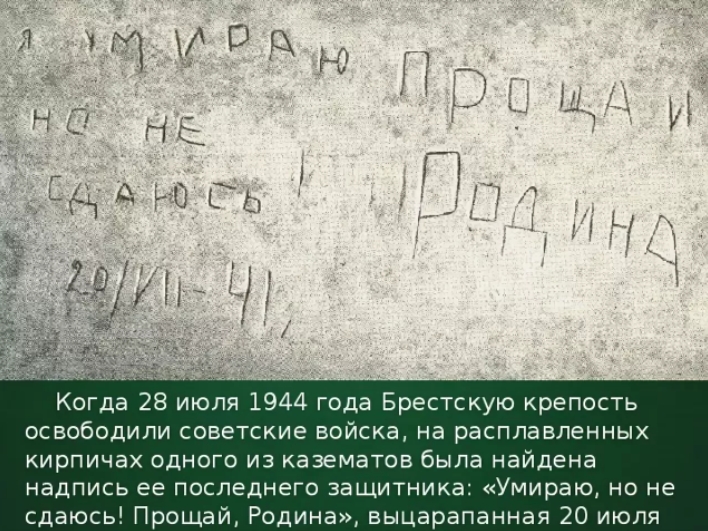 Я УМИРАЮ
НО НЕ
СДАЮСЬ!
20/VII-41.
ПРОЩАЙ
РОДИНА
Когда 28 июля 1944 года Брестскую крепость
освободили советские войска, на расплавленных
кирпичах одного из казематов была найдена
надпись ее последнего защитника: «Умираю, но не
сдаюсь! Прощай, Родина», выцарапанная 20 июля